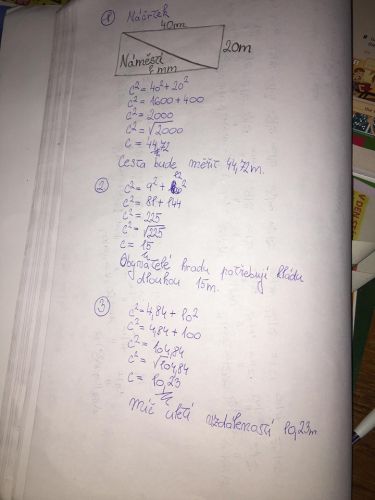 1 Náčrtek
40m
20m
Náměstí
? mm
c² = 40² + 20²
c² = 1600 + 400
c² = 2000
c² = √2000
c = 44,72
Cesta bude měřit 44,72 m.
2 c² = 9² + 12²
c² = 81 + 144
c² = 225
c² = √225
c = 15
Obyvatelé hradu potřebují kládu
dlouhou 15m.
3
c² = 4,84 + 10²
c² = 4,84 + 100
c² = 104,84
c² = √104,84
c = 10,23
Míč uletí vzdálenost 10,23m